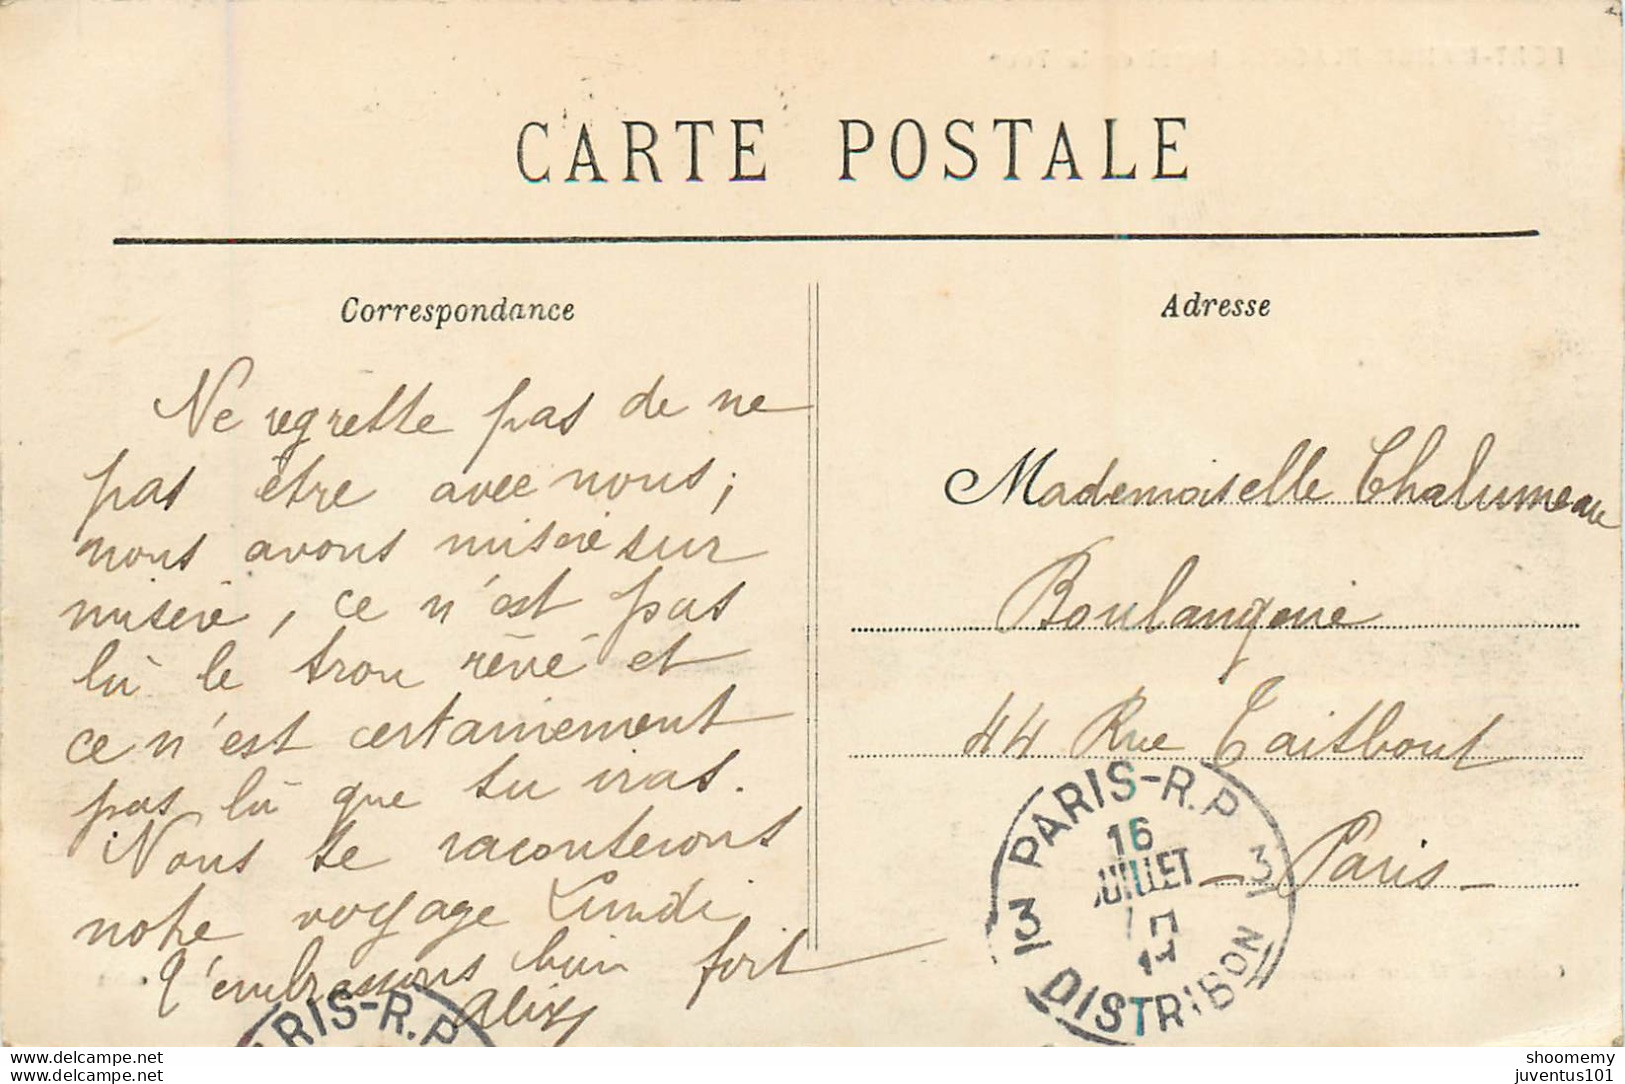 CARTE POSTALE
Correspondance
Ne regrette pas de ne
pas être avec nous,
nous avons misère sur
misère, ce n'est pas
là le trou rêvé et
ce n'est certainement
pas là que tu iras.
Nous te raconterons
notre voyage Lundi
T'embrassons bien fort
Alix
Adresse
Mademoiselle Chalumeau
Boulangerie
44 Rue Taitbout
- Paris -
PARIS-R.P
16
JUILLET
3 3
DISTRIBON
PARIS-R.P
http://juventus101.delcampe.net
http://juventus101.delcampe.net
shoomemy
juventus101